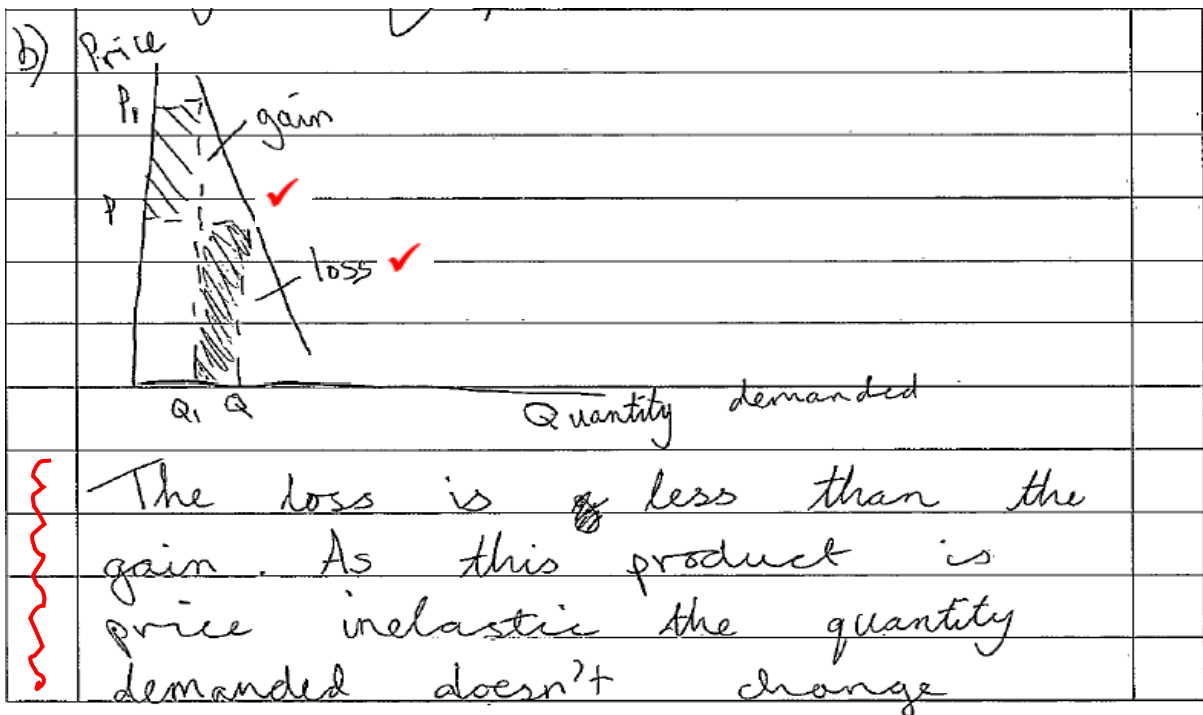 b) Price
P₁
gain
P
loss
Q₁ Q
Quantity demanded
The loss is less than the
gain. As this product is
price inelastic the quantity
demanded doesn't change